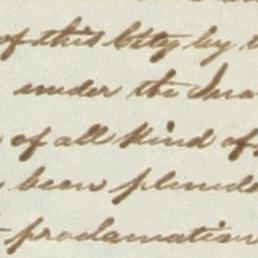 of this City by
under the
of all kind of
been
proclamation